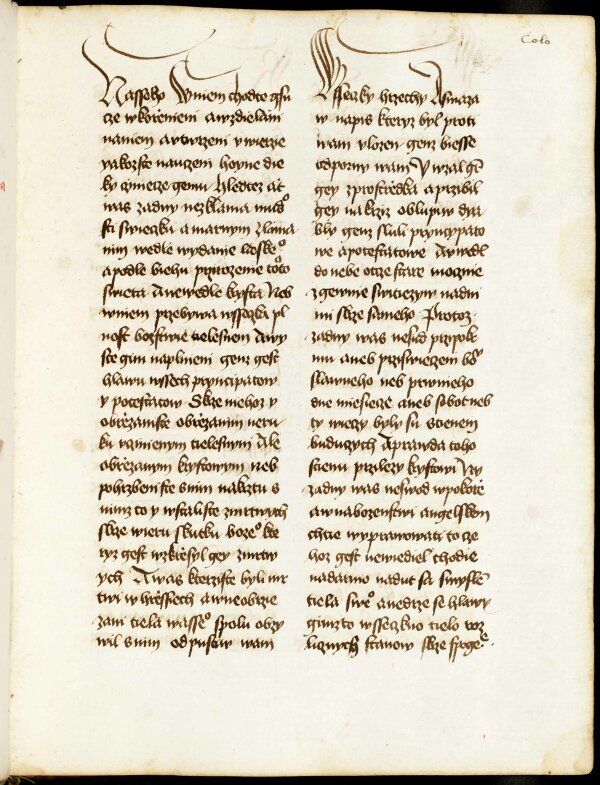 Colo
Nasseho W niem chodte gsu
cze wkorzenieni a wzdielani
naniem a vtwrzeni v wierze
yakozste nauczeni hoynie die
ky czinieze gemu Hledtez at
was zadny nezklama mudro
sti swiecku a marnym zlama
nim wedle wydanie lidskeo
a podle biehu przirozenie tohoto
swieta A newedle krysta Neb
wniem przebywa wssezka pl
nost bozstwie tielesnie A wy
ste gim naplnieni genz gest
hlawu wssech pryncipatow
y potestatow Skrze niehoz y
obrzezani ste obrzezanim neru
ku vczinienym tielesnym Ale
obrzezanym krystowym neb
pohrzbeni ste s nim na krztu s
nimz to y wstali ste z mrtwych
skrze wieru skutku bozeo kte
ryz gest wzkrziesyl gey z mrtw
ych A was kterziste byli mr
twi w hrziessiech a w neobrzie
zani tiela wasseo spolu obzy
wil s nim odpustiw wam
Wsseczky hrzechy A smaza
w napis kteryz byl proti
wam vlozen genz biesse
odporny wam Y wzal gt
gey z prostrzedka a przibil
gey na krziz oblupiw dya
bly genz sluli pryncypato
we a potestatowe A y wedl
do nebe otcze stare mocznie
zgewnie swiciezyw nad ni
mi skrze sameho Protoz
zadny was nesud w pokr
mu aneb przi swieczen bo
slawneho neb prwnieho
dne miesiecze aneb sobot neb
ty wieczy byly su stienem
buduczych A prawda toho
stienu przilezy krystowi Ny
zadny was neswod w pokorze
a w nabozenstwi angelskem
chtie wyprawowati to cze
hoz gest newidiel chodie
nadarmo nadut sa smyslem
tiela sweo a nedrze se hlawy
gimzto wsseczkno tielo roz
licznych stawow skrze spoge